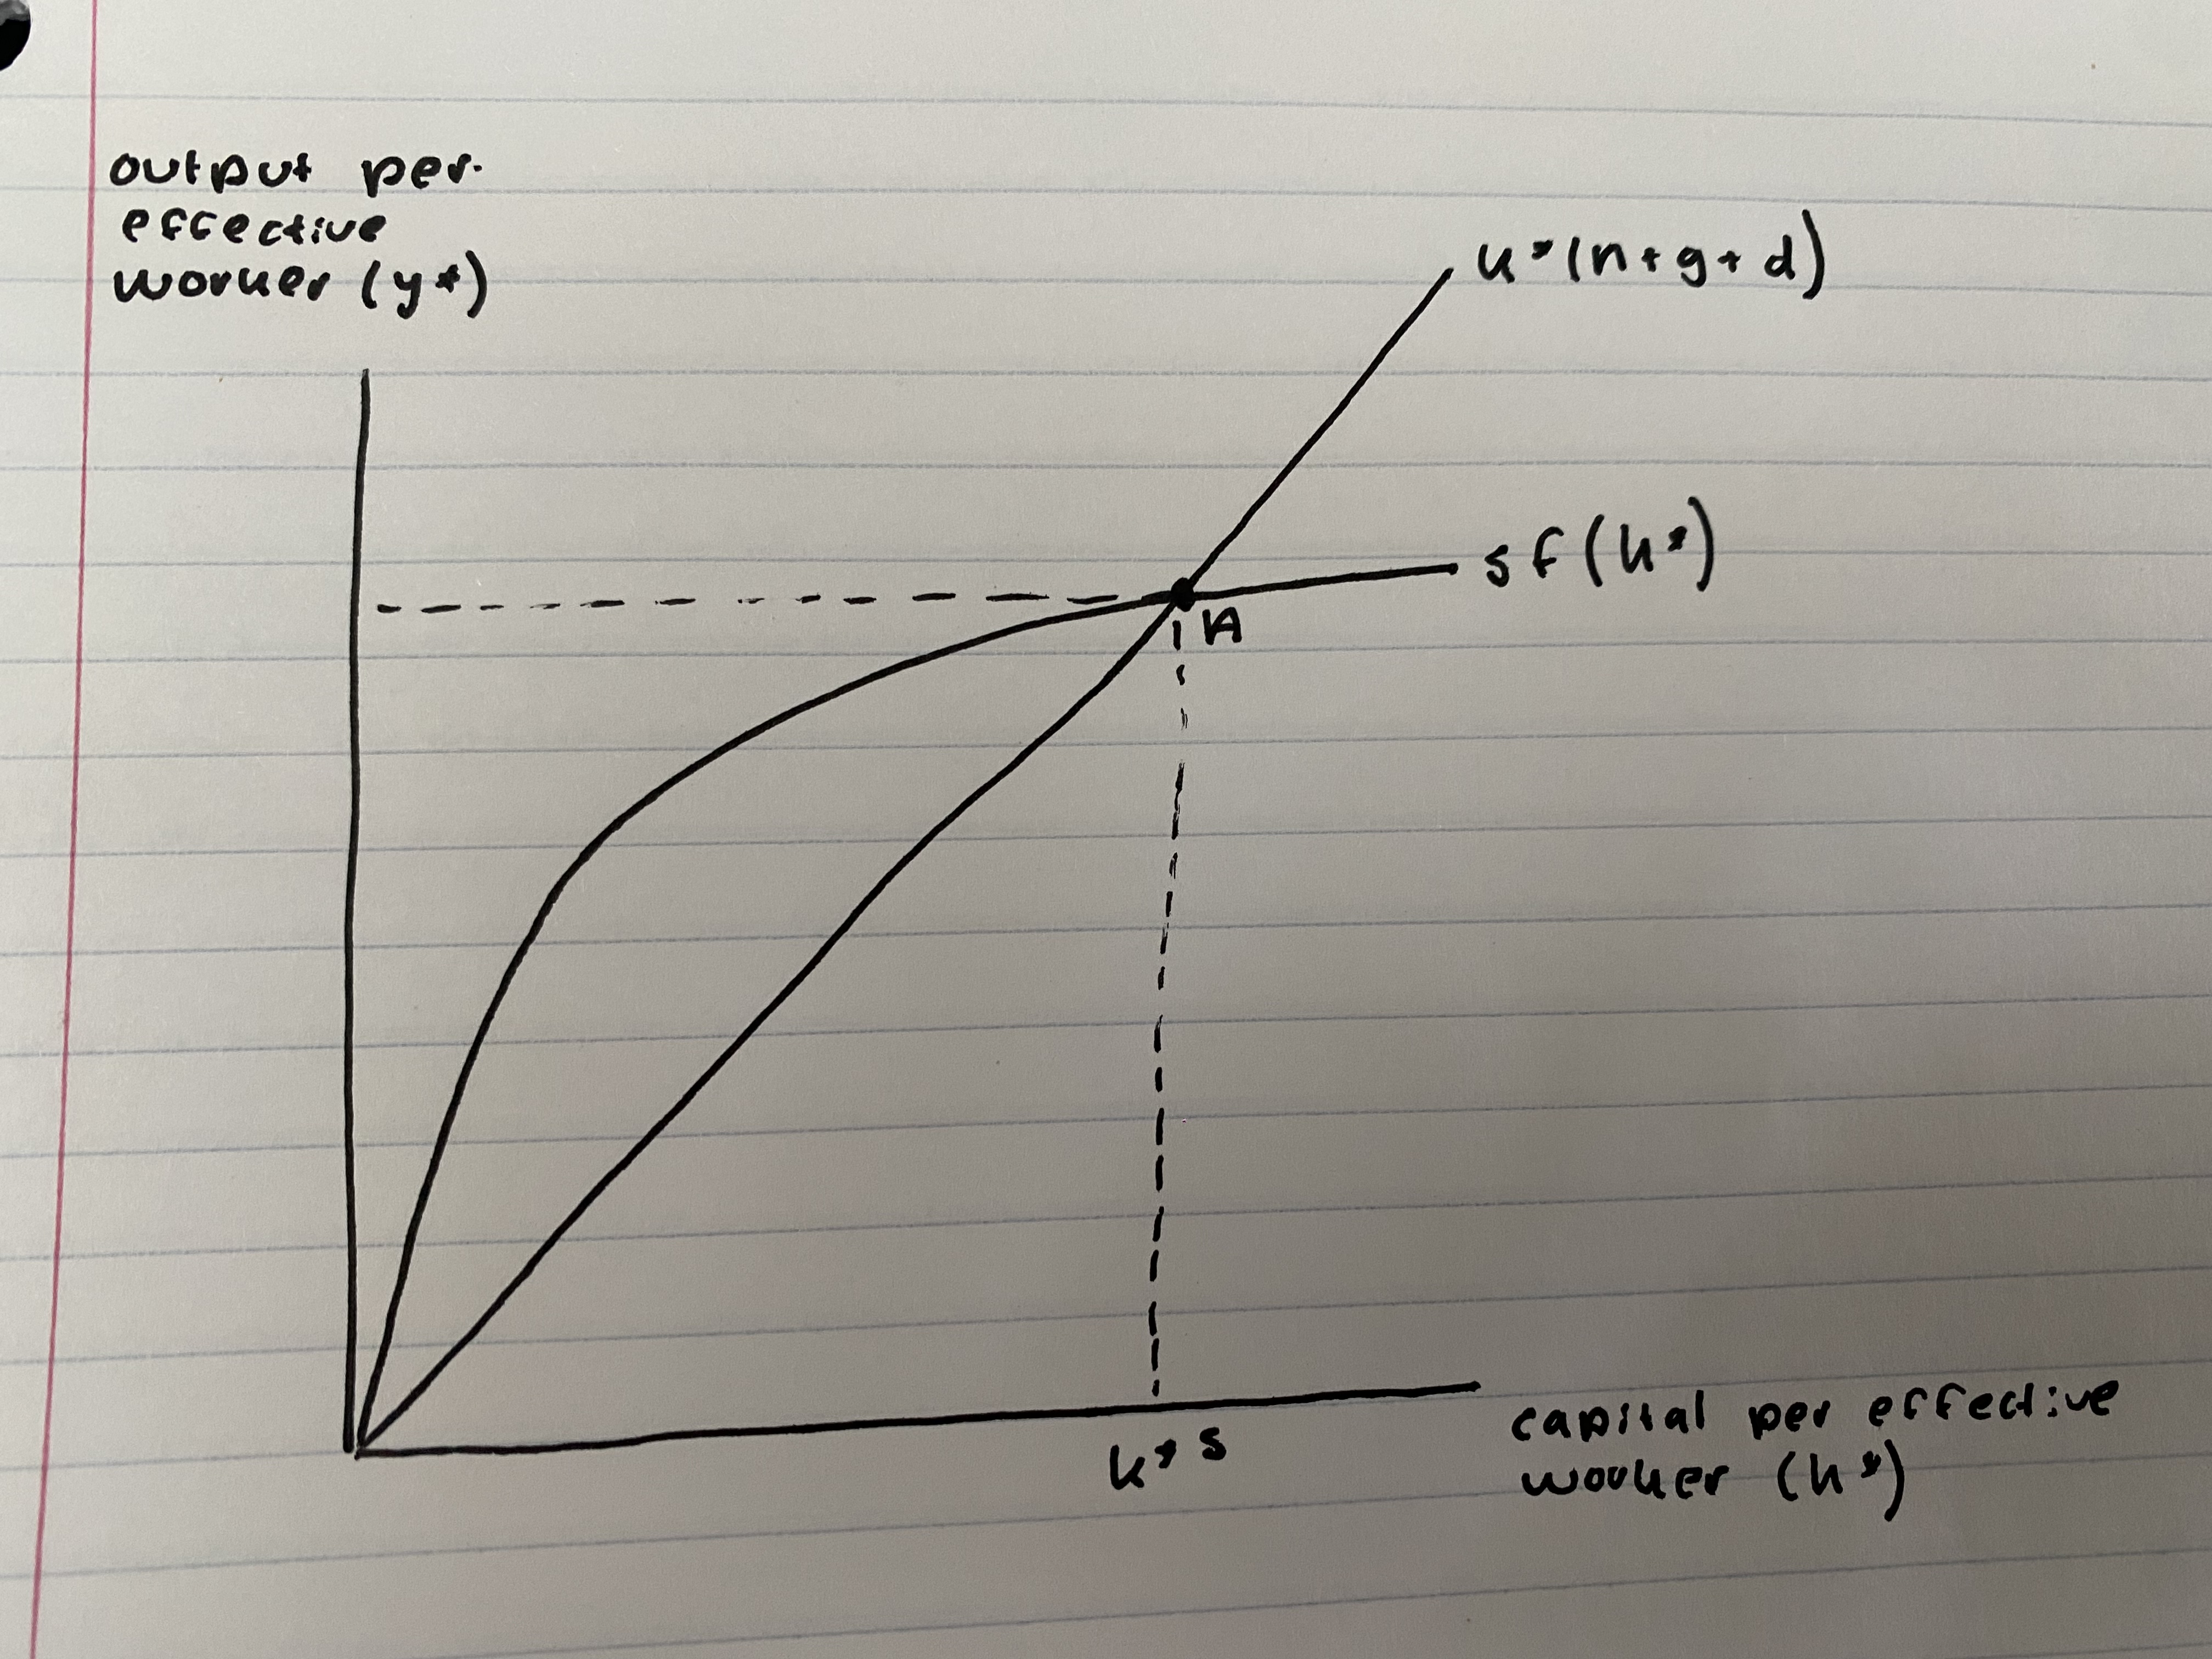 output per
effective
worker (y*)
k*(n+g+d)
sf(k*)
A
k*s
capital per effective
worker (k*)